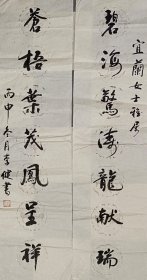 宜蘭女士雅屬
碧海驚濤龍献瑞
蒼梧葉茂鳳呈祥
丙申冬月李健書